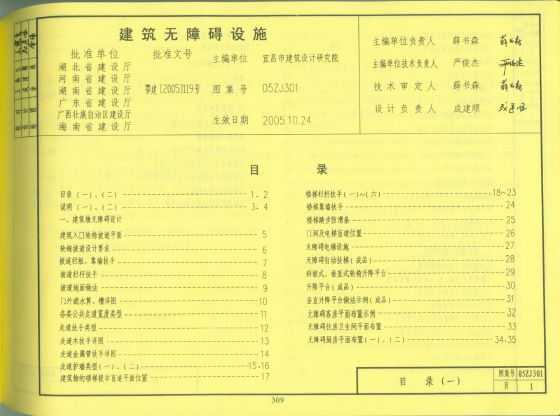 建筑无障碍设施
批准单位 批准文号 主编单位 宜昌市建筑设计研究院
湖北省建设厅
河南省建设厅
湖南省建设厅 鄂建[2005]119号 图集号 05ZJ301
广东省建设厅
广西壮族自治区建设厅
海南省建设厅 生效日期 2005.10.24
主编单位负责人 薛书森
主编单位技术负责人 严俊杰
技术审定人 薛书森
设计负责人 成建顺
目 录
目录(一)、(二) 1-2
说明(一)、(二) 3-4
一、建筑物无障碍设计
建筑入口轮椅坡道平面 5
轮椅坡道设计要求 6
坡道栏板、靠墙扶手 7
坡道栏杆扶手 8
坡道地面做法 9
门外疏水箅、槽详图 10
各类公共走道宽度类型 11
走道扶手类型 12
走道木扶手详图 13
走道金属管扶手详图 14
走道护墙类型(一)、(二) 15-16
建筑物的楼梯段非盲道平面位置 17
楼梯栏杆扶手(一)~(六) 18~23
楼梯靠墙扶手 24
楼梯踏步防滑条 25
门洞及电梯盲道位置 26
无障碍电梯设施 27
无障碍自动扶梯(成品) 28
斜桩式、垂直式轮椅升降平台 29
升降平台(成品) 30
垂直升降平台做法示例(成品) 31
无障碍客房平面布置示例 32
无障碍住房卫生间平面布置 33
无障碍厕所平面布置(一)、(二) 34-35
目 录(一) 图集号 05ZJ301
页 1
309